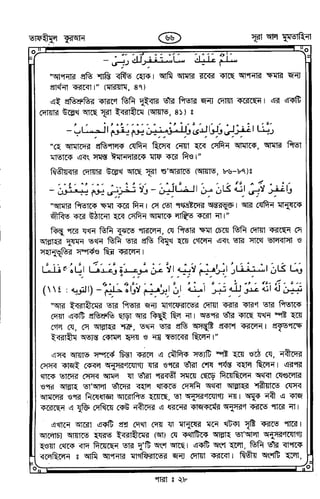 তাফহীমুল কুরআন ৬৬ সূরা আল মুমতাহিনা
سَلٰمٌ عَلَيْكَ سَاَسْتَغْفِرُلَكَ رَبِّىْ -
"আপনার প্রতি শান্তি বর্ষিত হোক। আমি আমার রবের কাছে আপনার ক্ষমার জন্য
প্রার্থনা করবো।" (মারয়াম, ৪৭)
এই প্রতিশ্রুতির কারণে তিনি দুইবার তাঁর পিতার জন্য দোয়া করেছেন। এর একটি
দোয়ার উল্লেখ আছে সূরা ইবরাহীমে (আয়াত, ৪১) ঃ
رَبَّنَا اغْفِرْلِىْ وَلِوَالِدَىَّ وَلِلْمُؤْمِنِيْنَ يَوْمَ يَقُوْمُ الْحِسَابُ -
"হে আমাদের প্রতিপালক যেদিন হিসেব নেয়া হবে সেদিন আমাকে, আমার পিতা
মাতাকে এবং সমস্ত ঈমানদারকে মাফ করে দিও।"
দ্বিতীয়বার দোয়ার উল্লেখ আছে সূরা শু'আরাতে (আয়াত, ৮৬-৮৭)ঃ
وَاغْفِرْ لِاَبِىْ اِنَّهُ كَانَ مِنَ الضَّالِّيْنَ - وَلَا تُخْزِنِىْ يَوْمَ يُبْعَثُوْنَ -
"আমার পিতাকে ক্ষমা করে দিন। সে তো পথভ্রষ্টদের অন্তরভুক্ত। আর যেদিন মানুষকে
জীবিত করে উঠানো হবে সেদিন আমাকে লাঞ্ছিত করো না।"
কিন্তু পরে যখন তিনি বুঝতে পারলেন, যে পিতার ক্ষমা চেয়ে তিনি দোয়া করছেন সে
আল্লাহর দুশমন তখন তিনি তার প্রতি বিমুখ হয়ে গেলেন এবং তার সাথে ভালবাসা ও
সহানুভূতির সম্পর্কও ছিন্ন করলেন।
وَمَا كَانَ اسْتِغْفَارُ اِبْرٰهِيْمَ لِاَبِيْهِ اِلَّا عَنْ مَّوْعِدَةٍ وَّعَدَهَا اِيَّاهُ فَلَمَّا
تَبَيَّنَ لَهُ اَنَّهُ عَدُوٌّ لِّلّٰهِ تَبَرَّاَ مِنْهُ اِنَّ اِبْرٰهِيْمَ لَاَوَّاهٌ حَلِيْمٌ - (التوبه : ١١٤)
"আর ইবরাহীমের তার পিতার জন্য মাগফেরাতের দোয়া করার কারণ তার পিতাকে
দেয়া একটি প্রতিশ্রুতি ছাড়া আর কিছুই ছিল না। অতপর তাঁর কাছে যখন স্পষ্ট হয়ে
গেল যে, সে আল্লাহর শত্রু, তখন তার প্রতি অসন্তুষ্টি প্রকাশ করলেন। প্রকৃতপক্ষে
ইবরাহীম অত্যন্ত কোমল হৃদয় ও নম্র স্বভাবের ছিলেন।"
এসব আয়াত সম্পর্কে চিন্তা করলে এ মৌলিক সত্যটি স্পষ্ট হয়ে ওঠে যে, নবীদের
সেসব কাজই কেবল অনুসরণযোগ্য যার ওপরে তাঁরা শেষ পর্যন্ত বহাল ছিলেন। এরপর
থাকে তাদের সেসব আমল যা তাঁরা পরবর্তী সময়ে ছেড়ে দিয়েছিলেন অথবা যেগুলোর
ওপর আল্লাহ তা'আলা তাঁদের বহাল থাকতে দেননি অথবা আল্লাহর শরীয়াতে যেসব
আমলের ওপর নিষেধাজ্ঞা আরোপিত হয়েছে, তা অনুসরণযোগ্য নয়। অমুক নবী এ কাজ
করেছেন এ যুক্তি দেখিয়ে কেউ নবীদের এ ধরনের কাজকর্মের অনুসরণ করতে পারে না।
এখানে আরো একটি প্রশ্ন দেখা দেয় যা মানুষের মনে খটকা সৃষ্টি করতে পারে।
আলোচ্য আয়াতে হযরত ইবরাহীমের (আ) যে কথাটিকে আল্লাহ তা'আলা অনুসরণযোগ্য
হওয়া থেকে বাদ দিয়েছেন তার দু'টি অংশ আছে। একটি অংশ হলো, তিনি তাঁর বাপকে
বলেছিলেন ঃ আমি আপনার মাগফিরাতের জন্য দোয়া করবো। দ্বিতীয় অংশটি হলো,
পারা ঃ ২৮